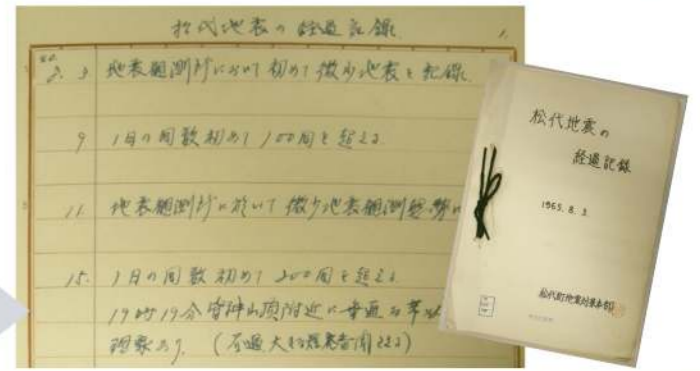 松代地震の経過記録
1.
40.
8. 3 地表観測所において初めて微少地震を記録
9 1日の回数初めて100回を超える
11. 地表観測所に於いて微少地表観測
15. 1日の回数初めて200回を超える
19時19分皆神山頂附近に
現象あり。
松代地震の
経過記録
1965. 8. 3.
松代町地震対策本部